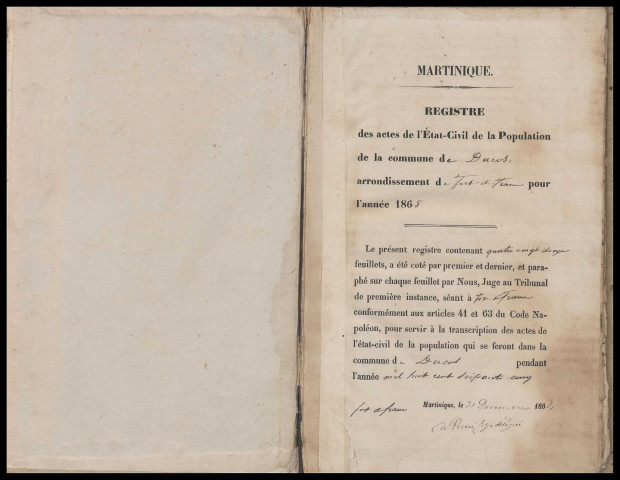 MARTINIQUE.
REGISTRE
des actes de l'État-Civil de la Population
de la commune de Ducos,
arrondissement de Fort-de-France pour
l'année 1865
Le présent registre contenant quatre vingt
feuillets, a été coté par premier et dernier, et para-
phé sur chaque feuillet par Nous, Juge au Tribunal
de première instance, séant à fort de France
conformément aux articles 41 et 63 du Code Na-
poléon, pour servir à la transcription des actes de
l'état-civil de la population qui se feront dans la
commune de Ducos pendant
l'année mil huit cent soixante cinq
fort de france Martinique, le 31 Décembre 186